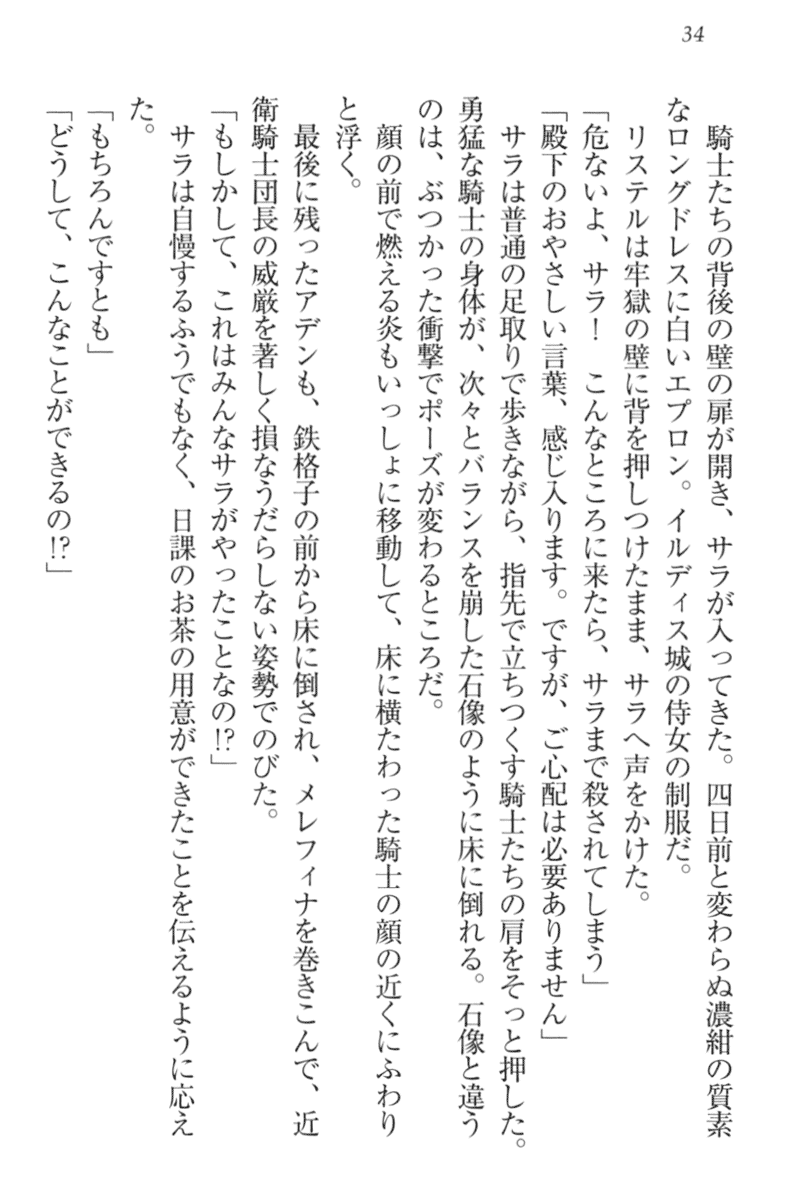 34
騎士たちの背後の壁の扉が開き、サラが入ってきた。四日前と変わらぬ濃紺の質素
なロングドレスに白いエプロン。イルディス城の侍女の制服だ。
リステルは牢獄の壁に背を押しつけたまま、サラへ声をかけた。
「危ないよ、サラ！　こんなところに来たら、サラまで殺されてしまう」
「殿下のおやさしい言葉、感じ入ります。ですが、ご心配は必要ありません」
サラは普通の足取りで歩きながら、指先で立ちつくす騎士たちの肩をそっと押した。
勇猛な騎士の身体が、次々とバランスを崩した石像のように床に倒れる。石像と違う
のは、ぶつかった衝撃でポーズが変わるところだ。
顔の前で燃える炎もいっしょに移動して、床に横たわった騎士の顔の近くにふわり
と浮く。
最後に残ったアデンも、鉄格子の前から床に倒され、メレフィナを巻きこんで、近
衛騎士団長の威厳を著しく損なうだらしない姿勢でのびた。
「もしかして、これはみんなサラがやったことなの!?」
サラは自慢するふうでもなく、日課のお茶の用意ができたことを伝えるように応え
た。
「もちろんですとも」
「どうして、こんなことができるの!?」